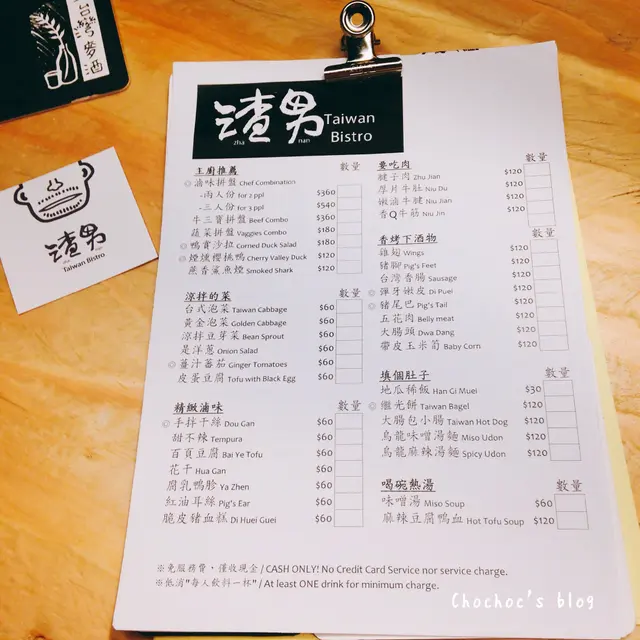 台灣麥酒
渣男
Taiwan Bistro
渣男 Taiwan
zha nan Bistro
主廚推薦 數量
◎ 滷味拼盤 Chef Combination
-兩人份 for 2 ppl $360
-三人份 for 3 ppl $540
牛三寶拼盤 Beef Combo $360
蔬菜拼盤 Vaggies Combo $180
◎ 鴨賞沙拉 Corned Duck Salad $180
◎ 煙燻櫻桃鴨 Cherry Valley Duck $120
蔗香鯊魚煙 Smoked Shark $120
涼拌的菜 數量
台式泡菜 Taiwan Cabbage $60
黃金泡菜 Golden Cabbage $60
涼拌豆芽菜 Bean Sprout $60
是洋蔥 Onion Salad $60
◎ 薑汁蕃茄 Ginger Tomatoes $60
皮蛋豆腐 Tofu with Black Egg $60
精緻滷味 數量
◎ 手拌干絲 Dou Gan $60
甜不辣 Tempura $60
百頁豆腐 Bai Ye Tofu $60
花干 Hua Gan $60
腐乳鴨胗 Ya Zhen $60
紅油耳絲 Pig's Ear $60
脆皮豬血糕 Di Huei Guei $60
要吃肉 數量
腱子肉 Zhu Jian $120
厚片牛肚 Niu Du $120
嫩滷牛腱 Niu Jian $120
香Q牛筋 Niu Jin $120
香烤下酒物 數量
雞翅 Wings $120
豬腳 Pig's Feet $120
台灣香腸 Sausage $120
◎ 彈牙嫩皮 Di Puei $120
◎ 豬尾巴 Pig's Tail $120
五花肉 Belly meat $120
大腸頭 Dwa Dang $120
帶皮玉米筍 Baby Corn $120
填個肚子 數量
地瓜稀飯 Han Gi Muei $30
◎ 繼光餅 Taiwan Bagel $120
大腸包小腸 Taiwan Hot Dog $120
烏龍味噌湯麵 Miso Udon $120
烏龍麻辣湯麵 Spicy Udon $120
喝碗熱湯 數量
味噌湯 Miso Soup $60
麻辣豆腐鴨血 Hot Tofu Soup $120
※免服務費，僅收現金 / CASH ONLY! No Credit Card Service nor service charge.
※低消"每人飲料一杯" / At least ONE drink for minimum charge.
Chochoc's blog